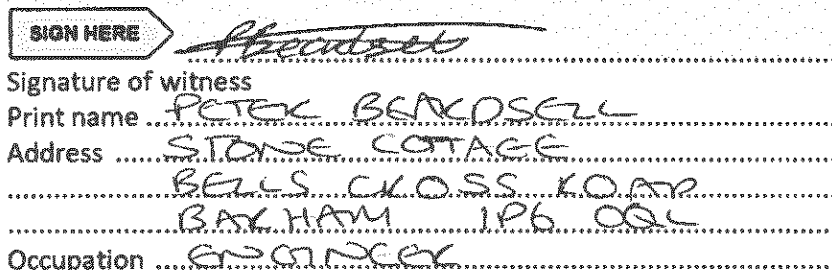 SIGN HERE PBeardsell
Signature of witness
Print name PETER BEARDSELL
Address STONE COTTAGE
BELLS CROSS ROAD
BARHAM IP6 0QL
Occupation ENGINEER